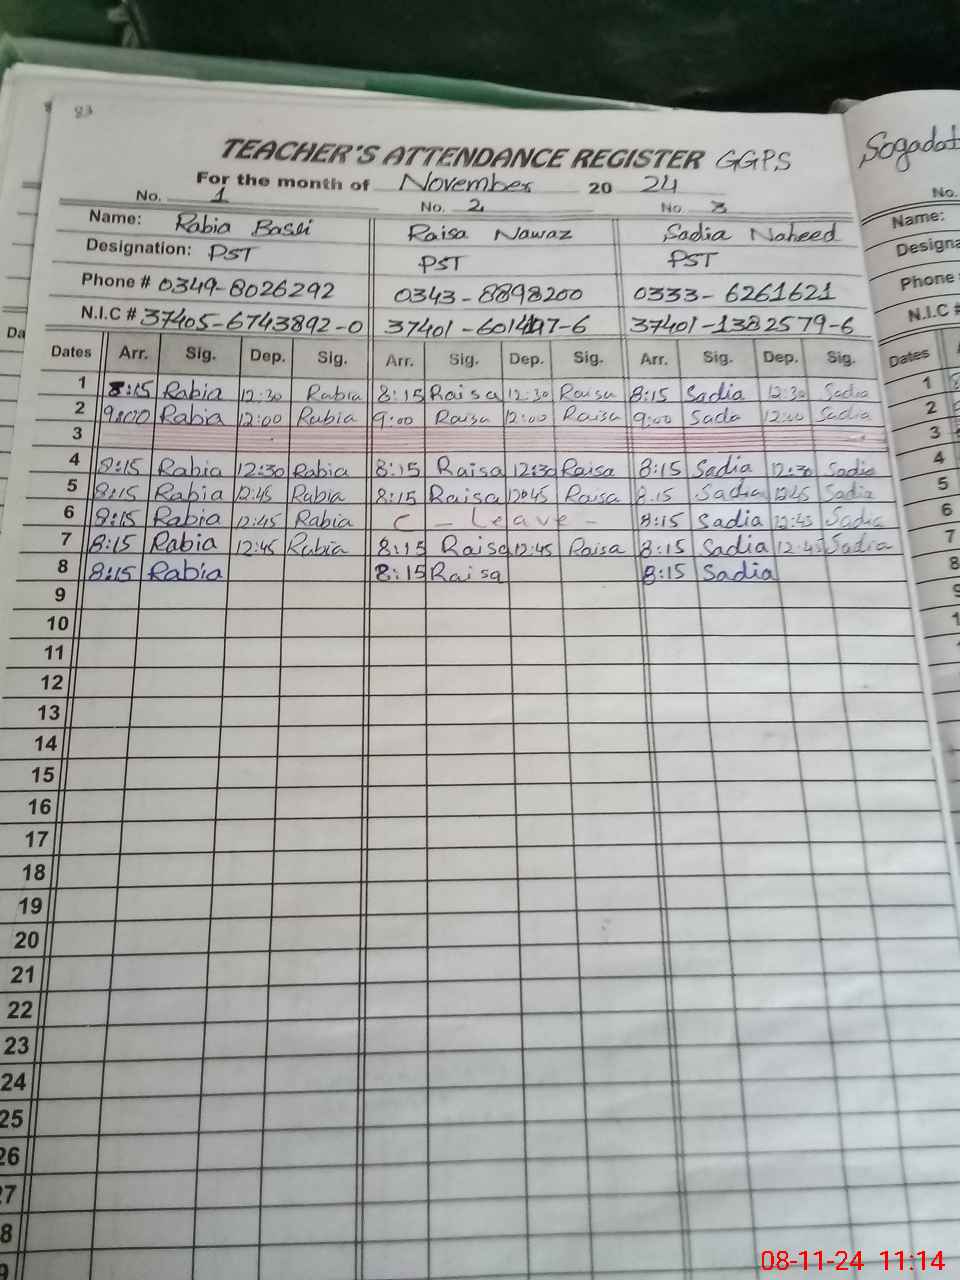 83
TEACHER'S ATTENDANCE REGISTER GGPS
For the month of November 20 24
No. 1 No. 2 No. 3
Name: Rabia Basri Raisa Nawaz Sadia Naheed
Designation: PST PST PST
Phone # 0349-8026292 0343-8898200 0333-6261621
N.I.C # 37405-6743892-0 37401-6014197-6 37401-1382579-6
Dates Arr. Sig. Dep. Sig. Arr. Sig. Dep. Sig. Arr. Sig. Dep. Sig.
1 8:15 Rabia 12:30 Rabia 8:15 Raisa 12:30 Raisa 8:15 Sadia 12:30 Sadia
2 9:00 Rabia 12:00 Rabia 9:00 Raisa 12:00 Raisa 9:00 Sada 12:00 Sadia
3
4 8:15 Rabia 12:30 Rabia 8:15 Raisa 12:30 Raisa 8:15 Sadia 12:30 Sadia
5 8:15 Rabia 12:45 Rabia 8:15 Raisa 12:45 Raisa 8:15 Sadia 12:45 Sadia
6 8:15 Rabia 12:45 Rabia C - Leave - 8:15 Sadia 12:45 Sadia
7 8:15 Rabia 12:45 Rabia 8:15 Raisa 12:45 Raisa 8:15 Sadia 12:45 Sadia
8 8:15 Rabia 8:15 Raisa 8:15 Sadia
9
10
11
12
13
14
15
16
17
18
19
20
21
22
23
24
25
26
27
Sogadat
No.
Name:
Phone
N.I.C #
Dates
1
2
3
4
5
6
7
8
08-11-24 11:14